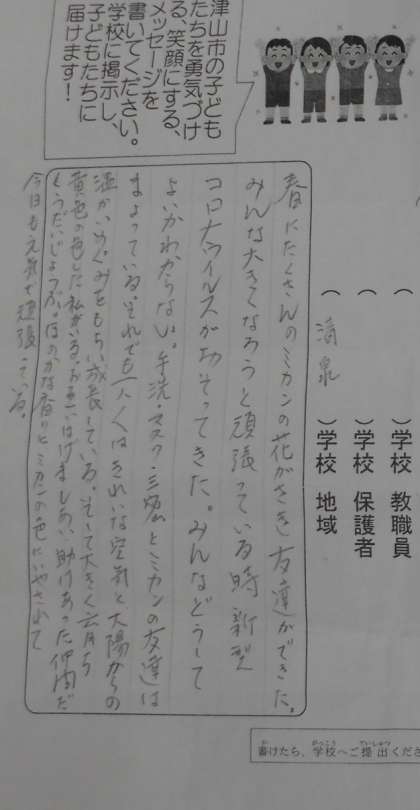 津山市の子ども
たちを勇気づけ
る、笑顔にする、
メッセージを
書いてください。
学校に掲示し、
子どもたちに
届けます！
（　　　）学校 教職員
（　　　）学校 保護者
（ 清泉 ）学校 地域
春にたくさんのミカンの花がさき友達ができた。
みんな大きくなろうと頑張っている時新型
コロナウイルスがおそってきた。みんなどうして
よいかわからない。手洗・マスク・三密とミカンの友達は
まよっている。それでも一人くはきれいな空気と太陽からの
温かいめぐみをもらい成長している。そして大きく
黄色の色した私がいる。お互いはげましあい助けあった仲間だ
もうだいじょうぶ。ほのかな香りとミカンの色にいやされて
今日も元気で頑張っている。
書けたら、学校へご提出くださ